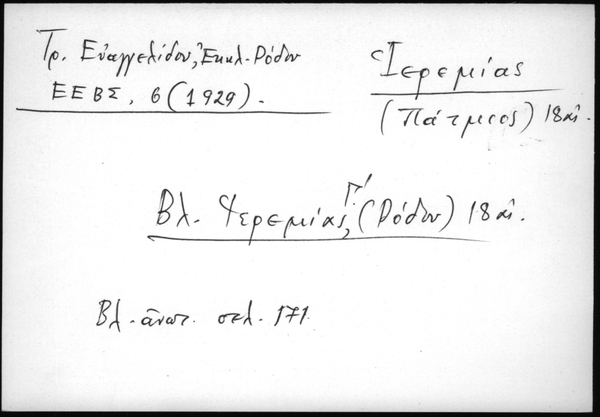 Τρ. Εὐαγγελίδου, Ἐκκλ. Ρόδου
ΕΕΒΣ, 6 (1929).
Ἱερεμίας
(Πάτμιος) 18 αἰ.
Βλ. Ἱερεμίας Γ', (Ρόδου) 18 αἰ.
Βλ. ἄνωτ. σελ. 171.